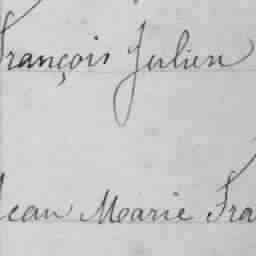 François Julien
Jean Marie Fra